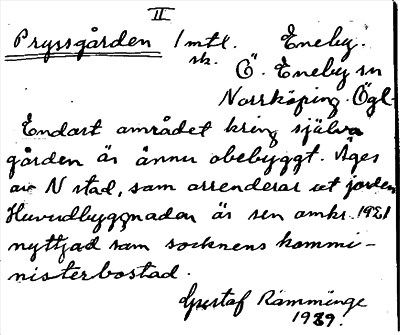 II
Pryssgården 1 mtl. Eneby.
sk. Ö. Eneby sn
Norrköping. Ögl.
Endast området kring själva
gården är ännu obebyggt. Äges
av N stad, som arrenderar ut jorden
Huvudbyggnaden är sen omkr. 1921
nyttjad som socknens kommi-
nisterbostad.
Gustaf Rämminge
1939.